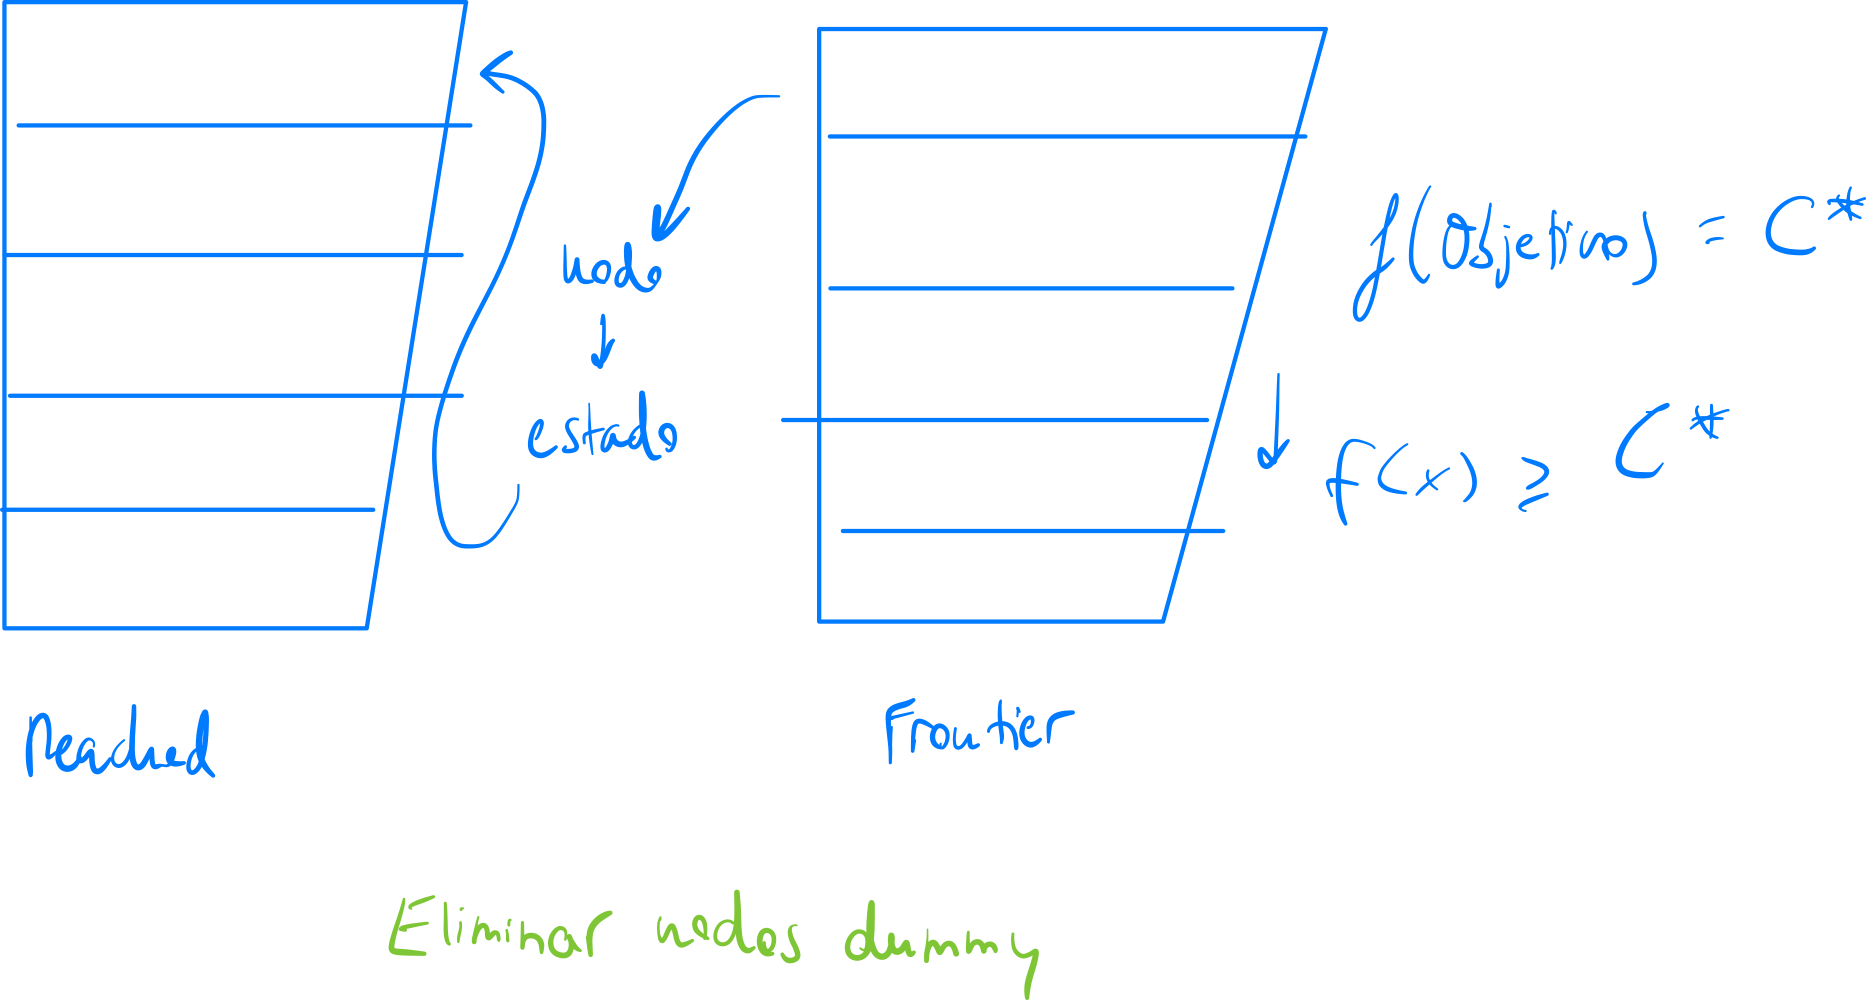 nodo
estado
f(Objetivo) = C*
f(x) ≥ C*
Reached
Frontier
Eliminar nodos dummy